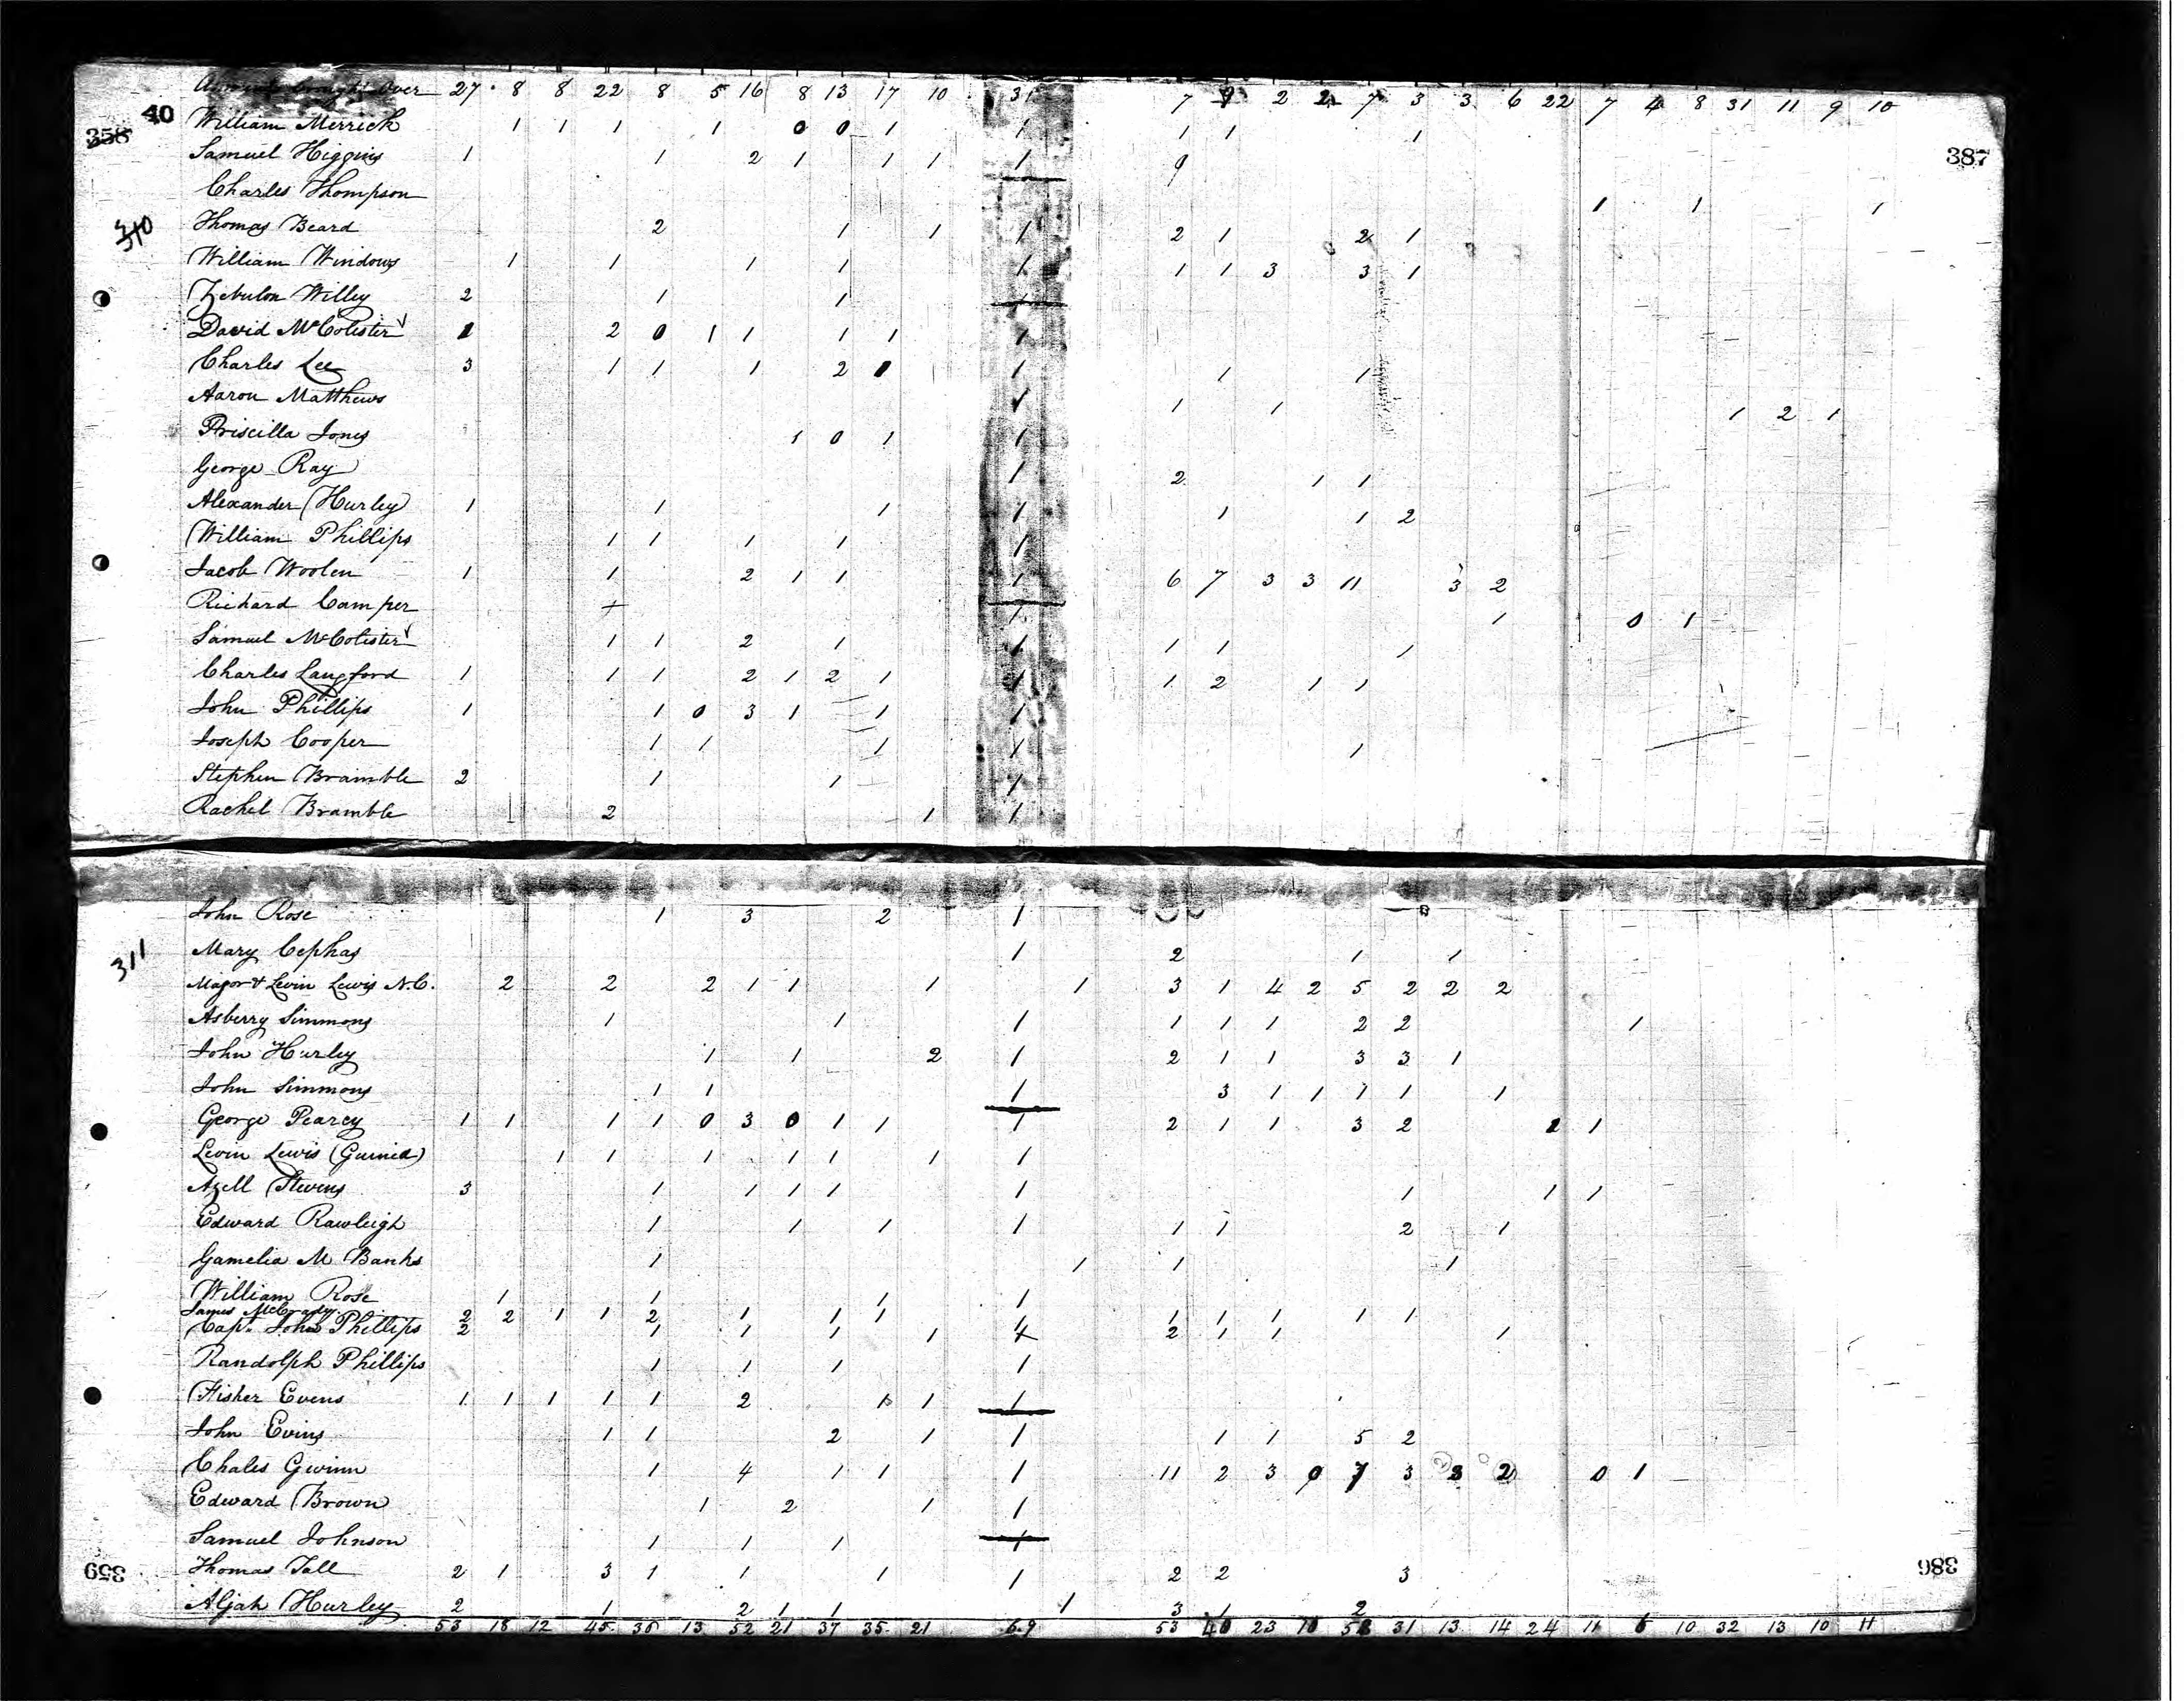 brought Over 27 8 8 22 8 5 16 8 13 17 10 31 7 9 2 2 7 3 3 6 22 7 4 8 31 11 9 10
40
358
387
William Merrick 1 1 1 1 0 0 1 1 1 1 1
Samuel Higgins 1 1 2 1 1 1 1 9
Charles Thompson 1 1 1
310
Thomas Beard 2 1 1 1 2 1 2 1
William Windows 1 1 1 1 1 1 1 3 3 1
Zebulon Willey 2 1 1 1
David McColister 1 2 0 1 1 1 1 1
Charles Lee 3 1 1 1 2 1 1 1
Aaron Matthews 1 1 1 1 2 1
Priscilla Jones 1 0 1 1
George Ray 1 2 1 1
Alexander Hurley 1 1 1 1 1 1 2
William Phillips 1 1 1 1 1
Jacob Woolen 1 1 2 1 1 1 6 7 3 3 11 3 2
Richard Camper 1 1 0 1
Samuel McColister 1 1 2 1 1 1 1 1
Charles Langford 1 1 1 2 1 2 1 1 1 2 1 1
John Phillips 1 1 0 3 1 1 1
Joseph Cooper 1 1 1 1 1
Stephen Bramble 2 1 1 1
Rachel Bramble 1 2 1 1
John Rose 1 3 2 1
311
Mary Cephas 1 2 1 1
Major & Levin Lewis N.C. 2 2 2 1 1 1 1 3 1 4 2 5 2 2 2
Asberry Simmons 1 1 1 1 1 1 2 2 1
John Hurley 1 1 2 1 2 1 1 3 3 1
John Simmons 1 1 1 3 1 1 1 1 1
George Pearcy 1 1 1 1 0 3 0 1 1 1 2 1 1 3 2 1 1
Levin Lewis (Guinea) 1 1 1 1 1 1 1
Azell Stevens 3 1 1 1 1 1 1 1 1
Edward Rawleigh 1 1 1 1 1 1 2 1
Gamelia M Banks 1 1 1 1
William Rose 1 1 1 1
James McGrady 2 2 1 1 2 1 1 1 1 1 1 1 1 1
Capt. John Phillips 2 1 1 1 1 2 1 1 1
Randolph Phillips 1 1 1 1
Fisher Evens 1 1 1 1 1 2 1 1 1
John Evins 1 1 2 1 1 1 1 5 2
Chales Gwinn 1 4 1 1 1 11 2 3 0 7 3 3 2 0 1
Edward Brown 1 2 1 1
Samuel Johnson 1 1 1 1
359
386
Thomas Tall 2 1 3 1 1 1 1 2 2 3
Aljah Hurley 2 1 2 1 1 1 3 1 2
53 18 12 45 36 13 52 21 37 35 21 69 53 40 23 10 31 13 14 24 11 10 32 13 10 11